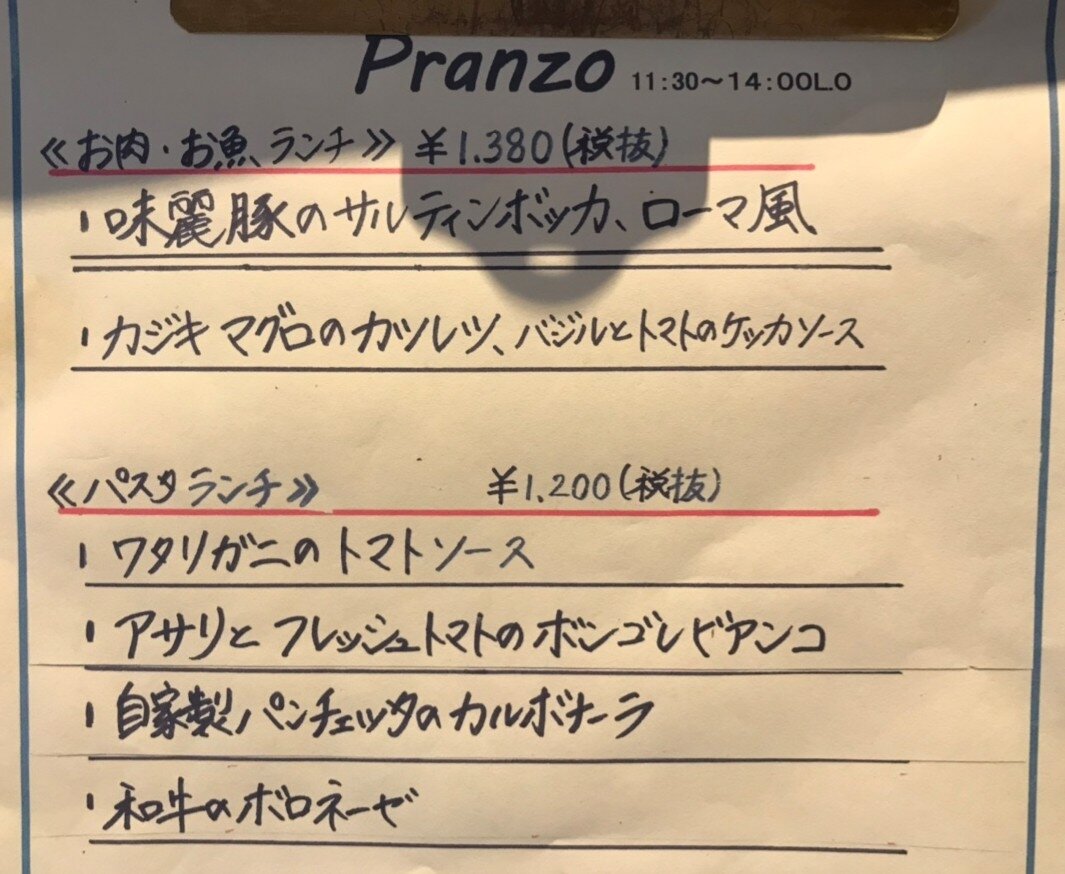 Pranzo 11:30〜14:00L.O
≪お肉・お魚ランチ≫ ¥1.380(税抜)
・味麗豚のサルティンボッカ、ローマ風
・カジキマグロのカツレツ、バジルとトマトのケッカソース
≪パスタランチ≫ ¥1.200(税抜)
・ワタリガニのトマトソース
・アサリとフレッシュトマトのボンゴレビアンコ
・自家製パンチェッタのカルボナーラ
・和牛のボロネーゼ